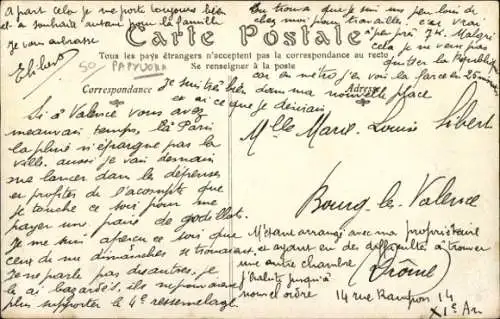 A part cela je me porte toujours bien
et a souhaite autant pour la famille
Je vous embrasse
Elibert
On trouve que je suis un peu loin de
chez moi pour travailler car vrai
à peu près 7K. Malgré
cela je ne veux pas
quitter la République
car en métro j'en vois la farce en 25 minutes
Carte Postale
Tous les pays étrangers n'acceptent pas la correspondance au recto
Se renseigner à la poste
50 PAPYVORK
Correspondance
Adresse
Je suis très bien dans ma nouvelle place
et ai ce que je désirais
Si à Valence vous avez
mauvais temps, là Paris
la pluie n'épargne pas la
ville. aussi je vais demain
me lancer dans les dépenses
en profiter de l'acompte que
je touche ce soir pour me
payer une paire de godillots.
Je me suis aperçu ce soir que
ceux de mes dimanches se trouvaient
Je ne parle pas des autres, je
le ai bazardés. ils ne pouvaient
plus supporter le 4e ressemelage
Mlle Marie-Louise Libert
Bourg-les-Valence
Drôme
M'étant arrangé avec ma propriétaire
et ayant eu des difficultés à trouver
une autre chambre
j'habite jusqu'à
nouvel ordre
14 rue Rampon 14
XIe Ar